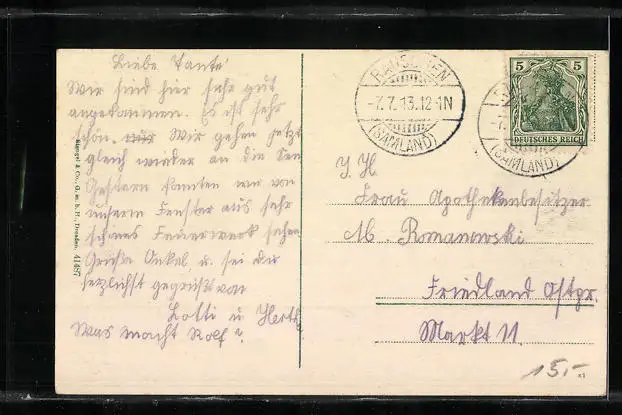 Liebe Tante
Wir sind hier sehr gut
angekommen. Es ist sehr
schön. Wir gehen jetzt
gleich wieder an die See
Gestern konnten wir von
unserm Fenster aus sehr
schönes Feuerwerk sehen.
Grüße Onkel u. sei du
herzlichst gegrüßt von
Lotti u Herth
Was macht Rolf?
Stengel & Co., G. m. b. H., Dresden. 41487
RAUSCHEN
-7.7.13.12-1N
(SAMLAND)
5 5
DEUTSCHES REICH
(SAMLAND)
I. H
Frau Apothekenbesitzer
M. Romanowski
Friedland Ostpr.
Markt 11.
15,-